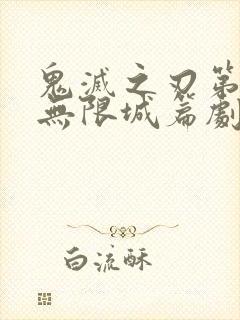 鬼滅之刃第
無限城篇劇
白流酥